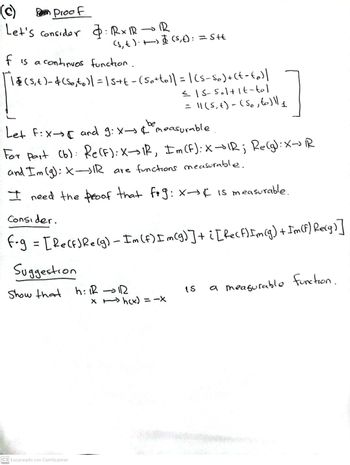 (c) Proof
Let's consider Φ: ℝ×ℝ → ℝ
(s,t) ↦ Φ(s,t) := s+t
f is a continuos function.
[|Φ(s,t) - Φ(s₀,t₀)| = |s+t - (s₀+t₀)| = |(s-s₀)+(t-t₀)|
≤ |s-s₀|+|t-t₀|
= ||(s,t) - (s₀,t₀)||₁]
Let f: X→ℂ and g: X→ℂ be measurable
For part (b): Re(f): X→ℝ, Im(f): X→ℝ; Re(g): X→ℝ
and Im(g): X→ℝ are functions measurable.
I need the proof that f·g: X→ℂ is measurable.
Consider.
f·g = [Re(f)Re(g) - Im(f)Im(g)] + i[Re(f)Im(g) + Im(f)Re(g)]
Suggestion
Show that h: ℝ → ℝ is a measurable function.
x ↦ h(x) = -x
CS Escaneado con CamScanner